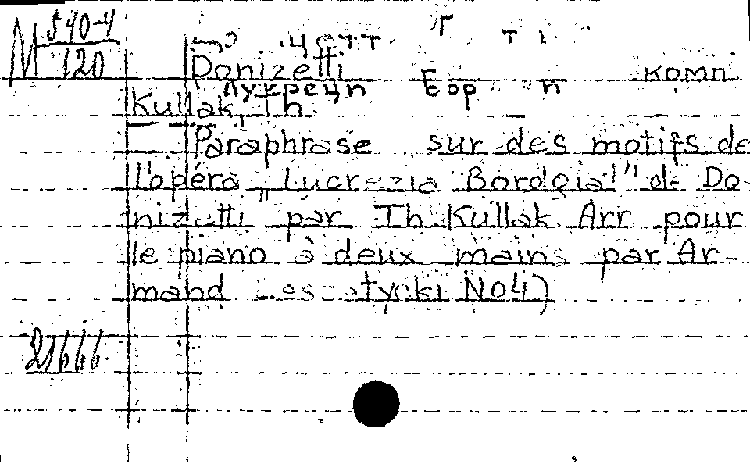 М 540-4
120
Donizetti
комп
Kullak, Th.
Paraphrase sur des motifs de
l'opéra „Lucrezia Bordgia!" de Do-
nizetti par Th Kullak Arr pour
le piano à deux mains par Ar-
mand No4)
21666